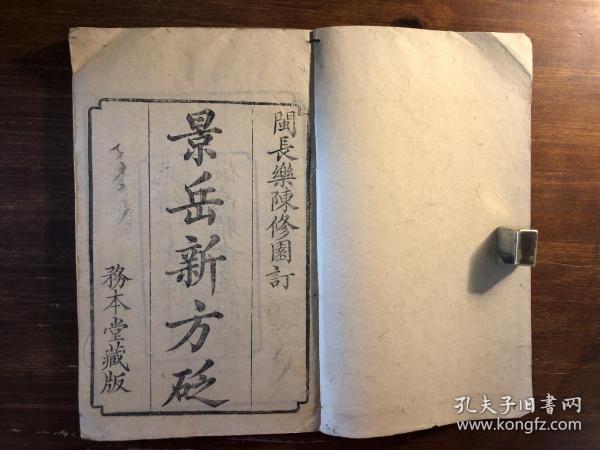 閩長樂陳修園訂
景岳新方砭
務本堂藏版
孔夫子旧書网
www.kongfz.com